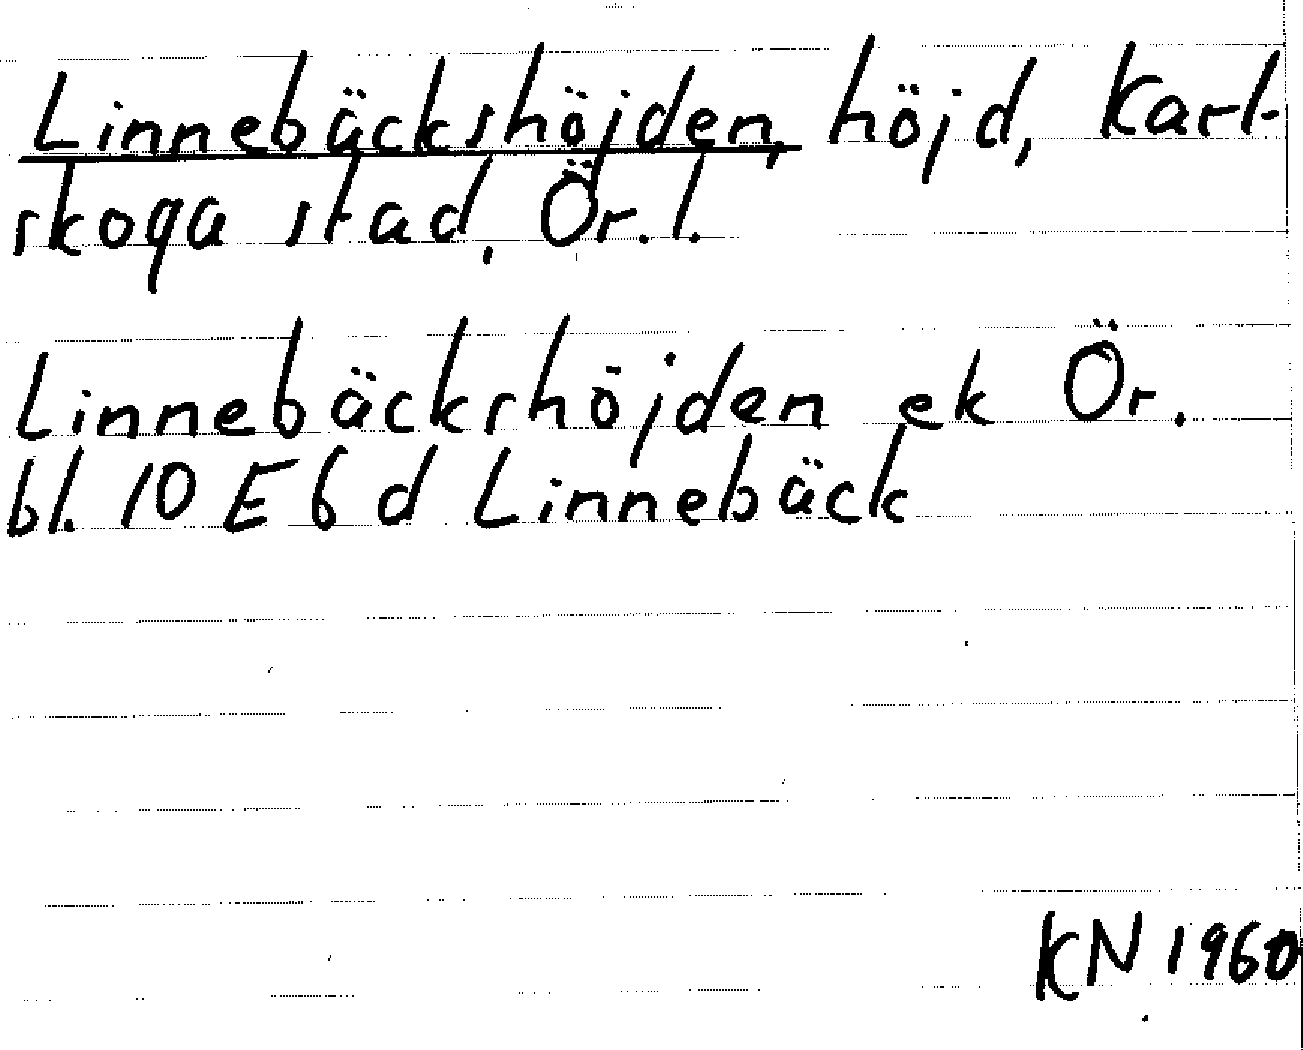 Linnebäckshöjden, höjd, Karl-
skoga stad, Ör. l.
Linnebäckshöjden ek Ör.
bl. 10 E 6 d Linnebäck
KN 1960